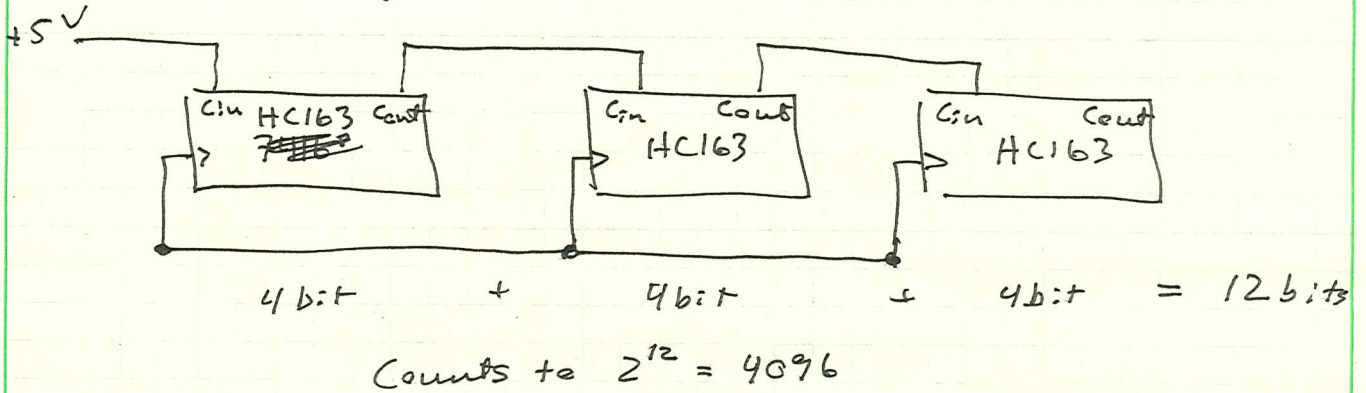 +5V
Cin HC163 Cout
Cin Cout
HC163
Cin Cout
HC163
4 bit + 4 bit + 4 bit = 12 bits
Counts to 2¹² = 4096